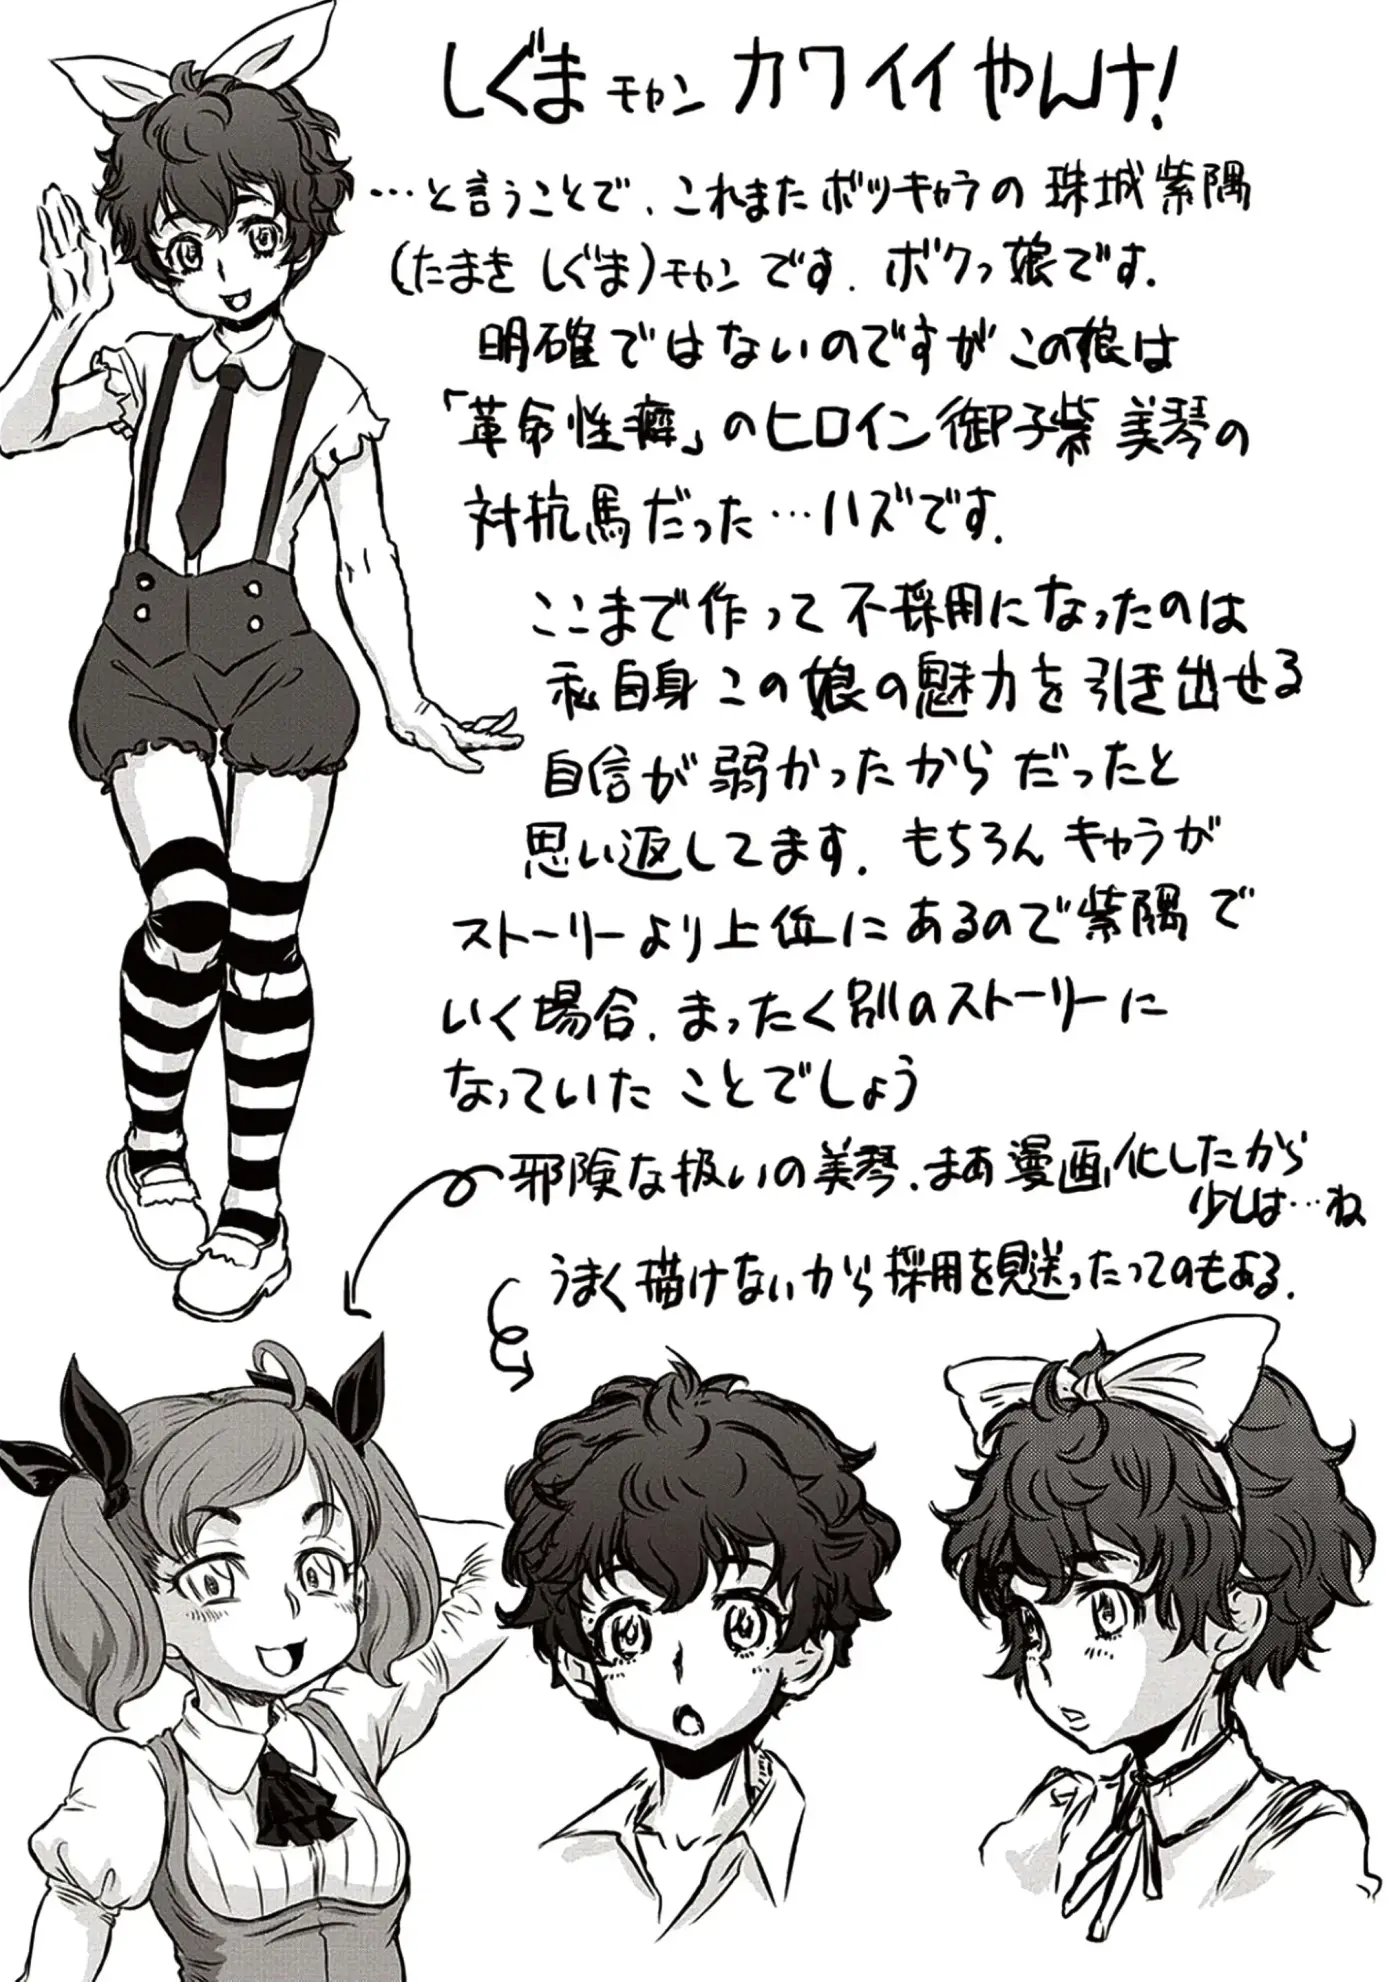 しぐま モャン カワイイやんけ!
…と言うことで、これまたボツキャラの 珠城紫隅
(たまき しぐま)モャンです. ボクっ娘です.
明確ではないのですが この娘は
「革命性癖」のヒロイン 御子紫 美琴の
対抗馬だった…ハズです.
ここまで作って 不採用になったのは
私自身 この娘の魅力を引き出せる
自信が弱かったから だったと
思い返してます. もちろん キャラが
ストーリーより上位にあるので紫隅で
いく場合、まったく別のストーリーに
なっていた ことでしょう
邪険な扱いの美琴、まあ漫画化したから
少しは…ね
うまく描けないから採用を見送ったってのもある.